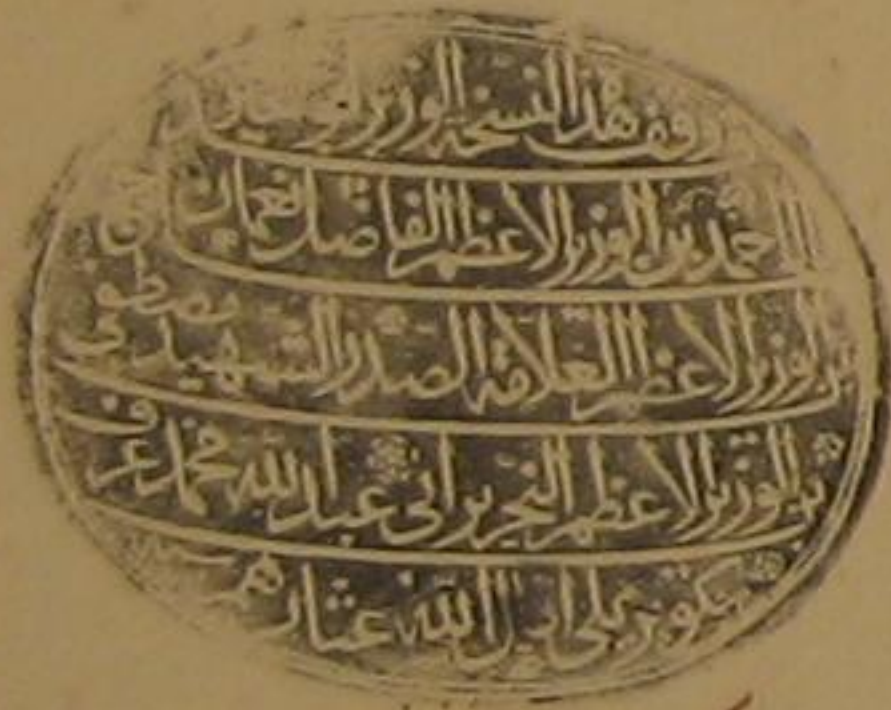 وقف هذا النسخة الوزير ابو
احمد بن الوزير الاعظم الفاضل نعمان
بن الوزير الاعظم العلامة الصدر الشهيد مصطفى
بن الوزير الاعظم النحرير ابى عبد الله محمد عرف
بكوبريلى اقال الله عثارهم